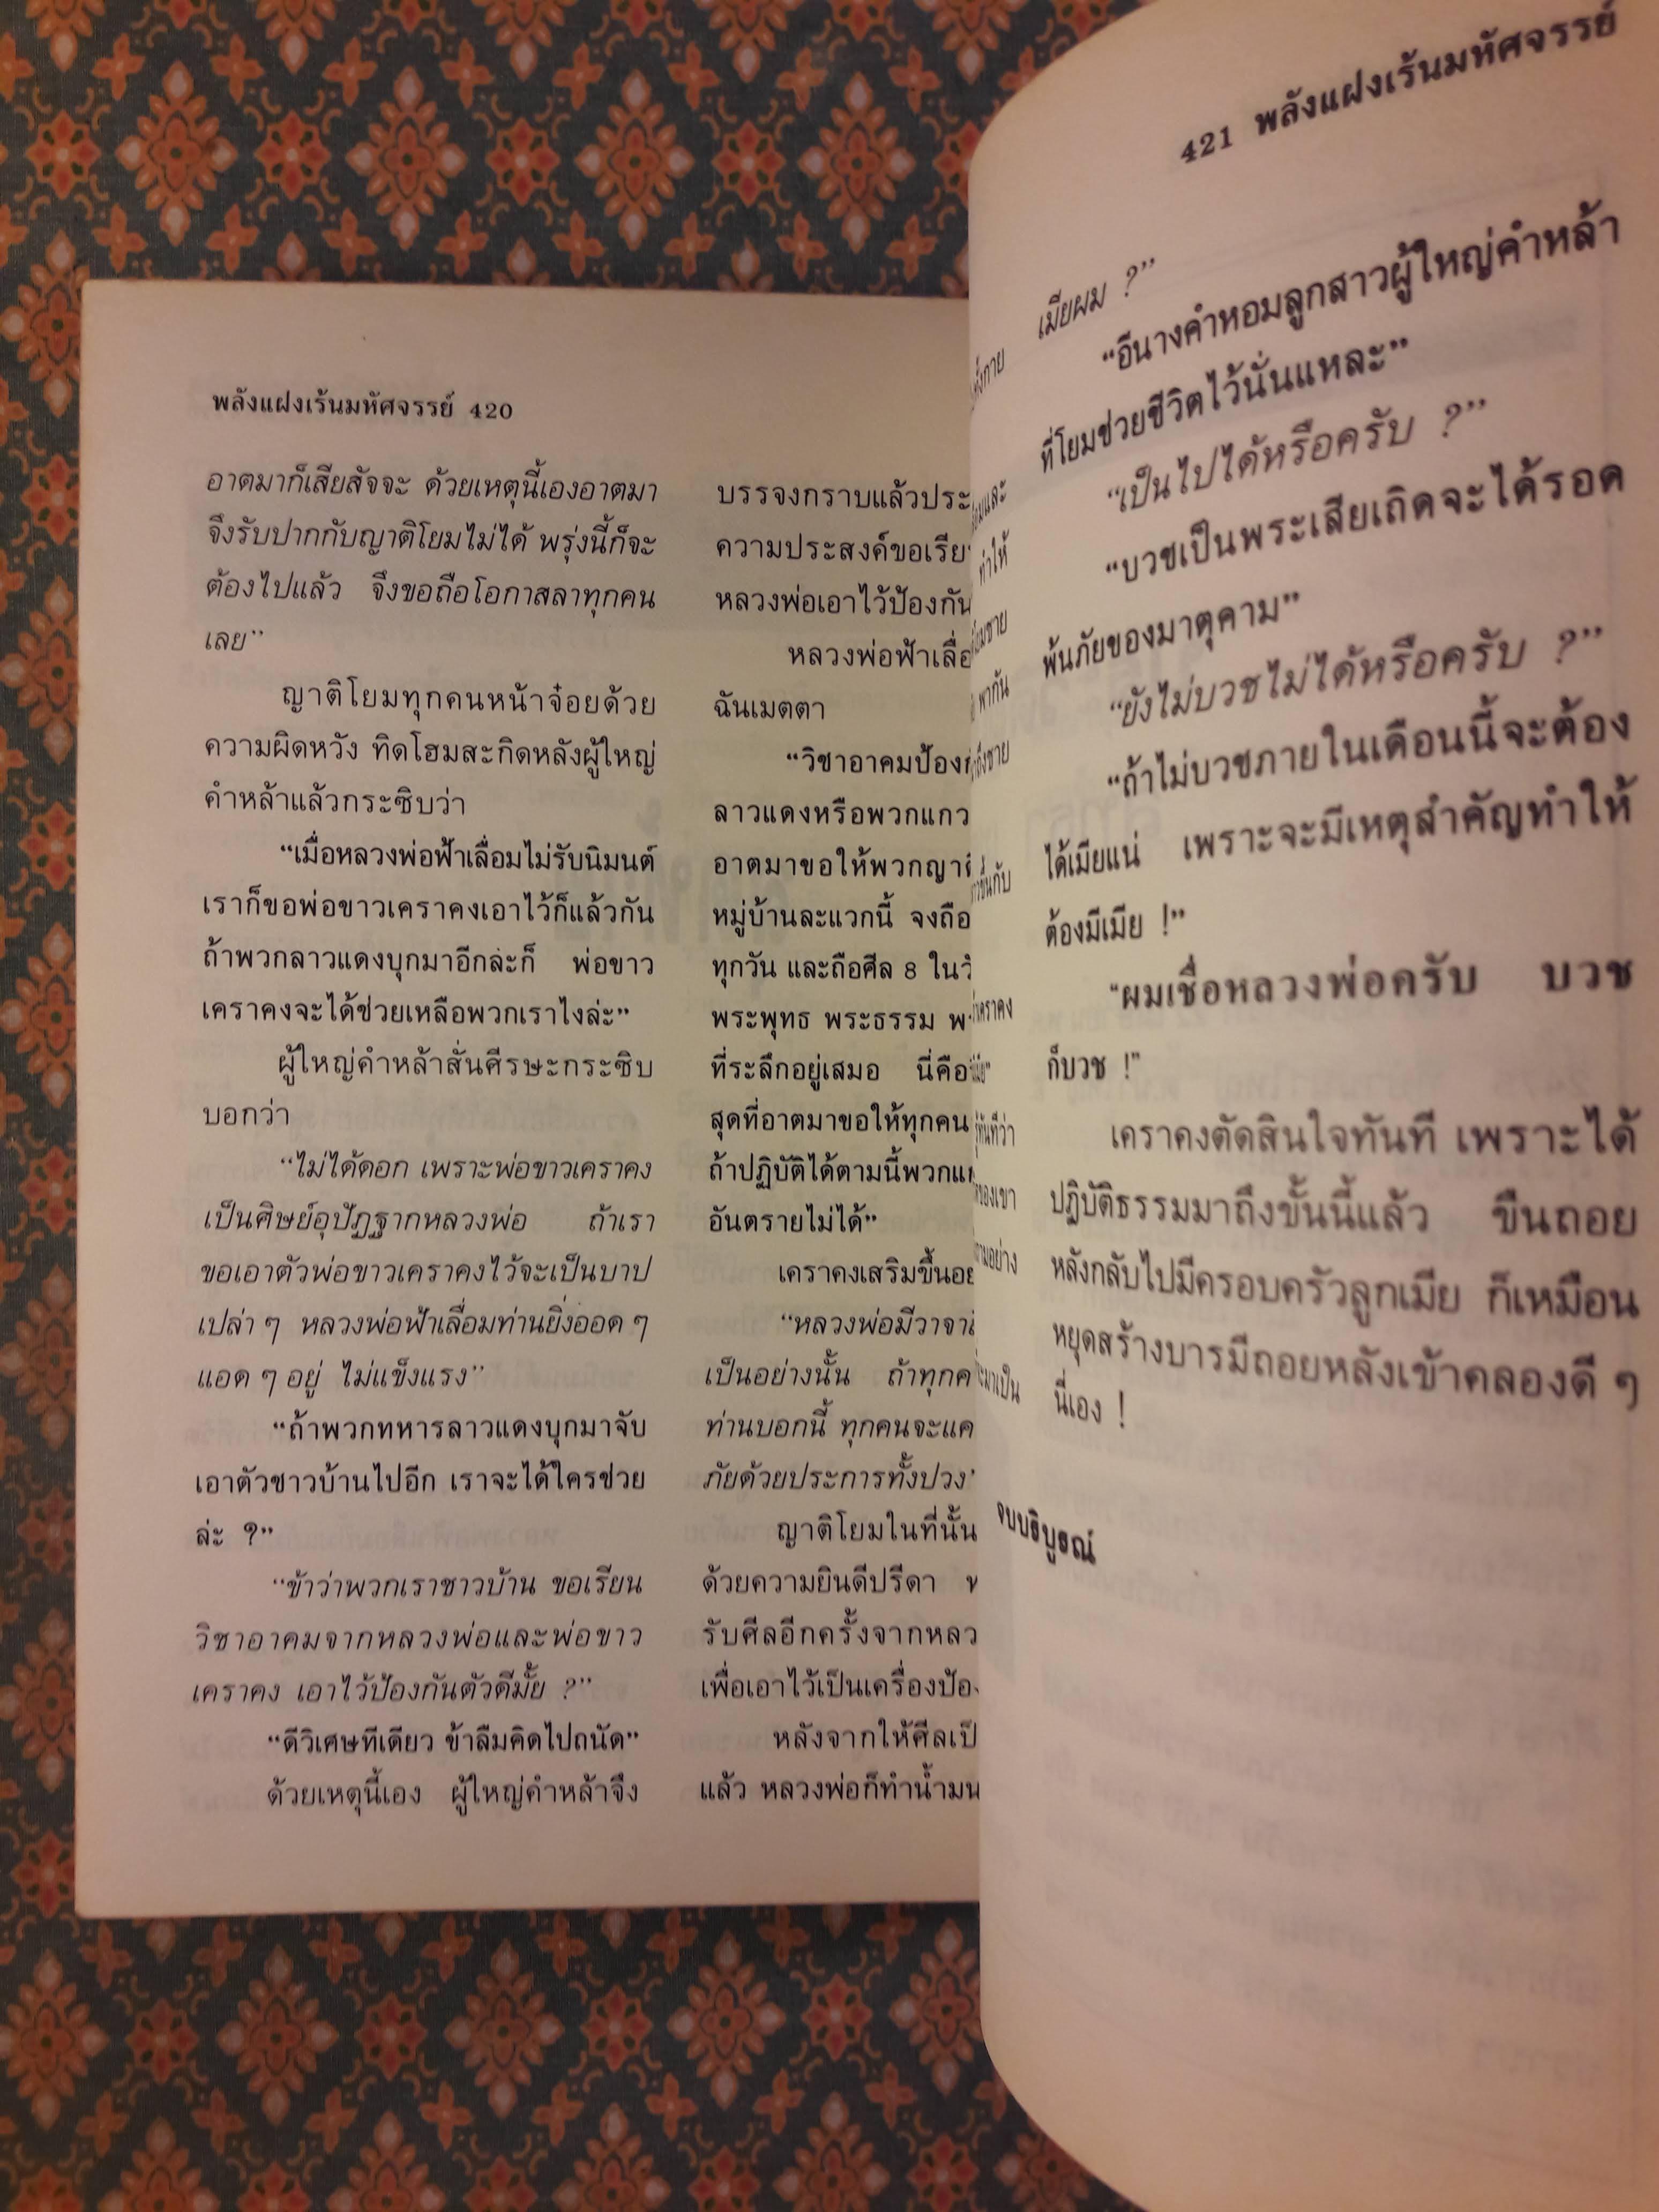 พลังแฝงเร้นมหัศจรรย์ 420
อาตมาก็เสียสัจจะ ด้วยเหตุนี้เองอาตมา
จึงรับปากกับญาติโยมไม่ได้ พรุ่งนี้ก็จะ
ต้องไปแล้ว จึงขอถือโอกาสลาทุกคน
เลย”
ญาติโยมทุกคนหน้าจ๋อยด้วย
ความผิดหวัง ทิดโฮมสะกิดหลังผู้ใหญ่
คำหล้าแล้วกระซิบว่า
“เมื่อหลวงพ่อฟ้าเลื่อมไม่รับนิมนต์
เราก็ขอพ่อขาวเคราคงเอาไว้ก็แล้วกัน
ถ้าพวกลาวแดงบุกมาอีกล่ะก็ พ่อขาว
เคราคงจะได้ช่วยเหลือพวกเราไงล่ะ”
ผู้ใหญ่คำหล้าสั่นศีรษะกระซิบ
บอกว่า
“ไม่ได้ดอก เพราะพ่อขาวเคราคง
เป็นศิษย์อุปัฏฐากหลวงพ่อ ถ้าเรา
ขอเอาตัวพ่อขาวเคราคงไว้จะเป็นบาป
เปล่า ๆ หลวงพ่อฟ้าเลื่อมท่านยิ่งออด ๆ
แอด ๆ อยู่ ไม่แข็งแรง”
“ถ้าพวกทหารลาวแดงบุกมาจับ
เอาตัวชาวบ้านไปอีก เราจะได้ใครช่วย
ล่ะ ?”
“ข้าว่าพวกเราชาวบ้าน ขอเรียน
วิชาอาคมจากหลวงพ่อและพ่อขาว
เคราคง เอาไว้ป้องกันตัวดีมั้ย ?”
“ดีวิเศษทีเดียว ข้าลืมคิดไปถนัด”
ด้วยเหตุนี้เอง ผู้ใหญ่คำหล้าจึง
บรรจงกราบแล้วประ
ความประสงค์ขอเรีย
หลวงพ่อเอาไว้ป้องกัน
หลวงพ่อฟ้าเลื่อ
ฉันเมตตา
“วิชาอาคมป้องกั
ลาวแดงหรือพวกแกว
อาตมาขอให้พวกญา
หมู่บ้านละแวกนี้ จงถือ
ทุกวัน และถือศีล 8 ในวั
พระพุทธ พระธรรม พ
ที่ระลึกอยู่เสมอ นี่คือ
สุดที่อาตมาขอให้ทุกคน
ถ้าปฏิบัติได้ตามนี้พวกแ
อันตรายไม่ได้”
เคราคงเสริมขึ้นอย
“หลวงพ่อมีวาจา
เป็นอย่างนั้น ถ้าทุกค
ท่านบอกนี้ ทุกคนจะแค
ภัยด้วยประการทั้งปวง”
ญาติโยมในที่นั้น
ด้วยความยินดีปรีดา
รับศีลอีกครั้งจากหลว
เพื่อเอาไว้เป็นเครื่องป้อง
หลังจากให้ศีลเป็
แล้ว หลวงพ่อก็ทำน้ำมน
421 พลังแฝงเร้นมหัศจรรย์
ทำให้
พากัน
เคราคง
ของเขา
เมียผม ?”
“อีนางคำหอมลูกสาวผู้ใหญ่คำหล้า
ที่โยมช่วยชีวิตไว้นั่นแหละ”
“เป็นไปได้หรือครับ ?”
“บวชเป็นพระเสียเถิดจะได้รอด
พ้นภัยของมาตุคาม”
“ยังไม่บวชไม่ได้หรือครับ ?”
“ถ้าไม่บวชภายในเดือนนี้จะต้อง
ได้เมียแน่ เพราะจะมีเหตุสำคัญทำให้
ต้องมีเมีย !”
“ผมเชื่อหลวงพ่อครับ บวช
ก็บวช !”
เคราคงตัดสินใจทันที เพราะได้
ปฏิบัติธรรมมาถึงขั้นนี้แล้ว ขืนถอย
หลังกลับไปมีครอบครัวลูกเมีย ก็เหมือน
หยุดสร้างบารมีถอยหลังเข้าคลองดี ๆ
นี่เอง !
จบบริบูรณ์